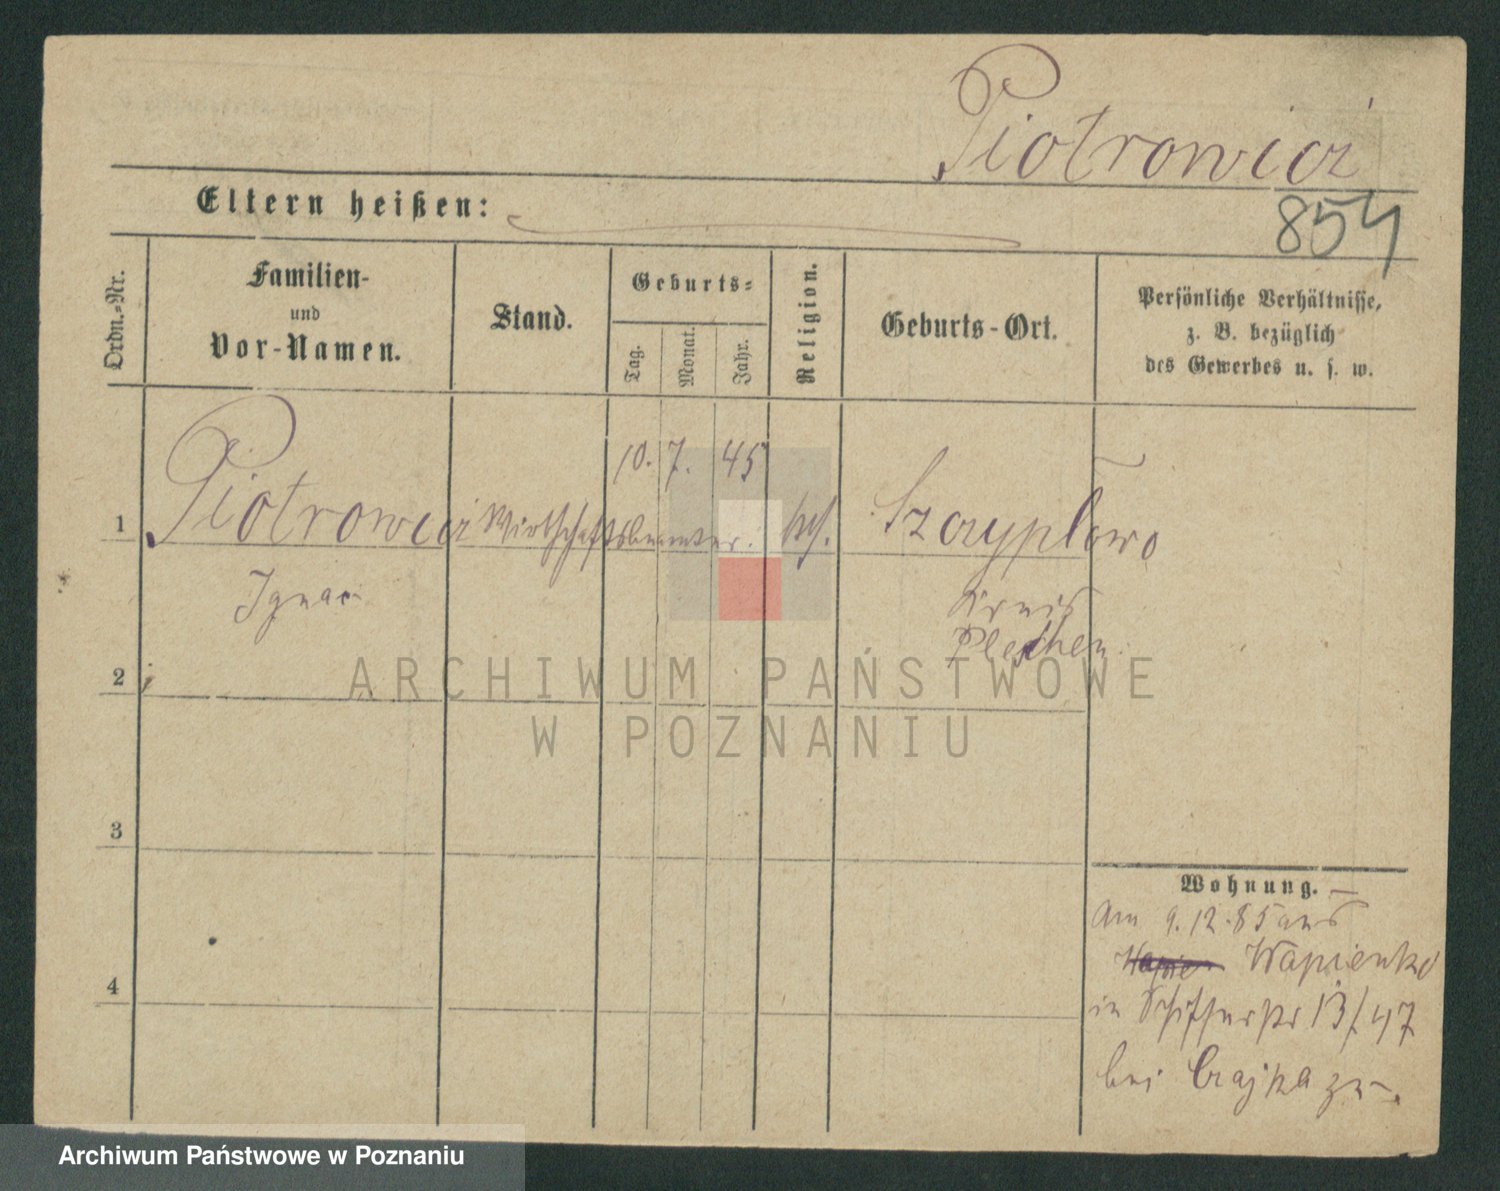 Piotrowicz
854
Eltern heißen:
Ordn.-Nr.
Familien-
und
Vor-Namen.
Stand.
Geburts-
Tag.
Monat.
Jahr.
Religion.
Geburts-Ort.
Persönliche Verhältnisse,
z. B. bezüglich
des Gewerbes u. s. w.
10. 7. 45
1 Piotrowicz Wirthschaftsbeamter. kath. Szczypłowo
Ignac Kreis
Pleschen
2
ARCHIWUM PAŃSTWOWE
W POZNANIU
3
Wohnung.
Am 9.12.85 aus
Wapienko
4
in Schifferstr 13/47
bei Czajka zu.
Archiwum Państwowe w Poznaniu